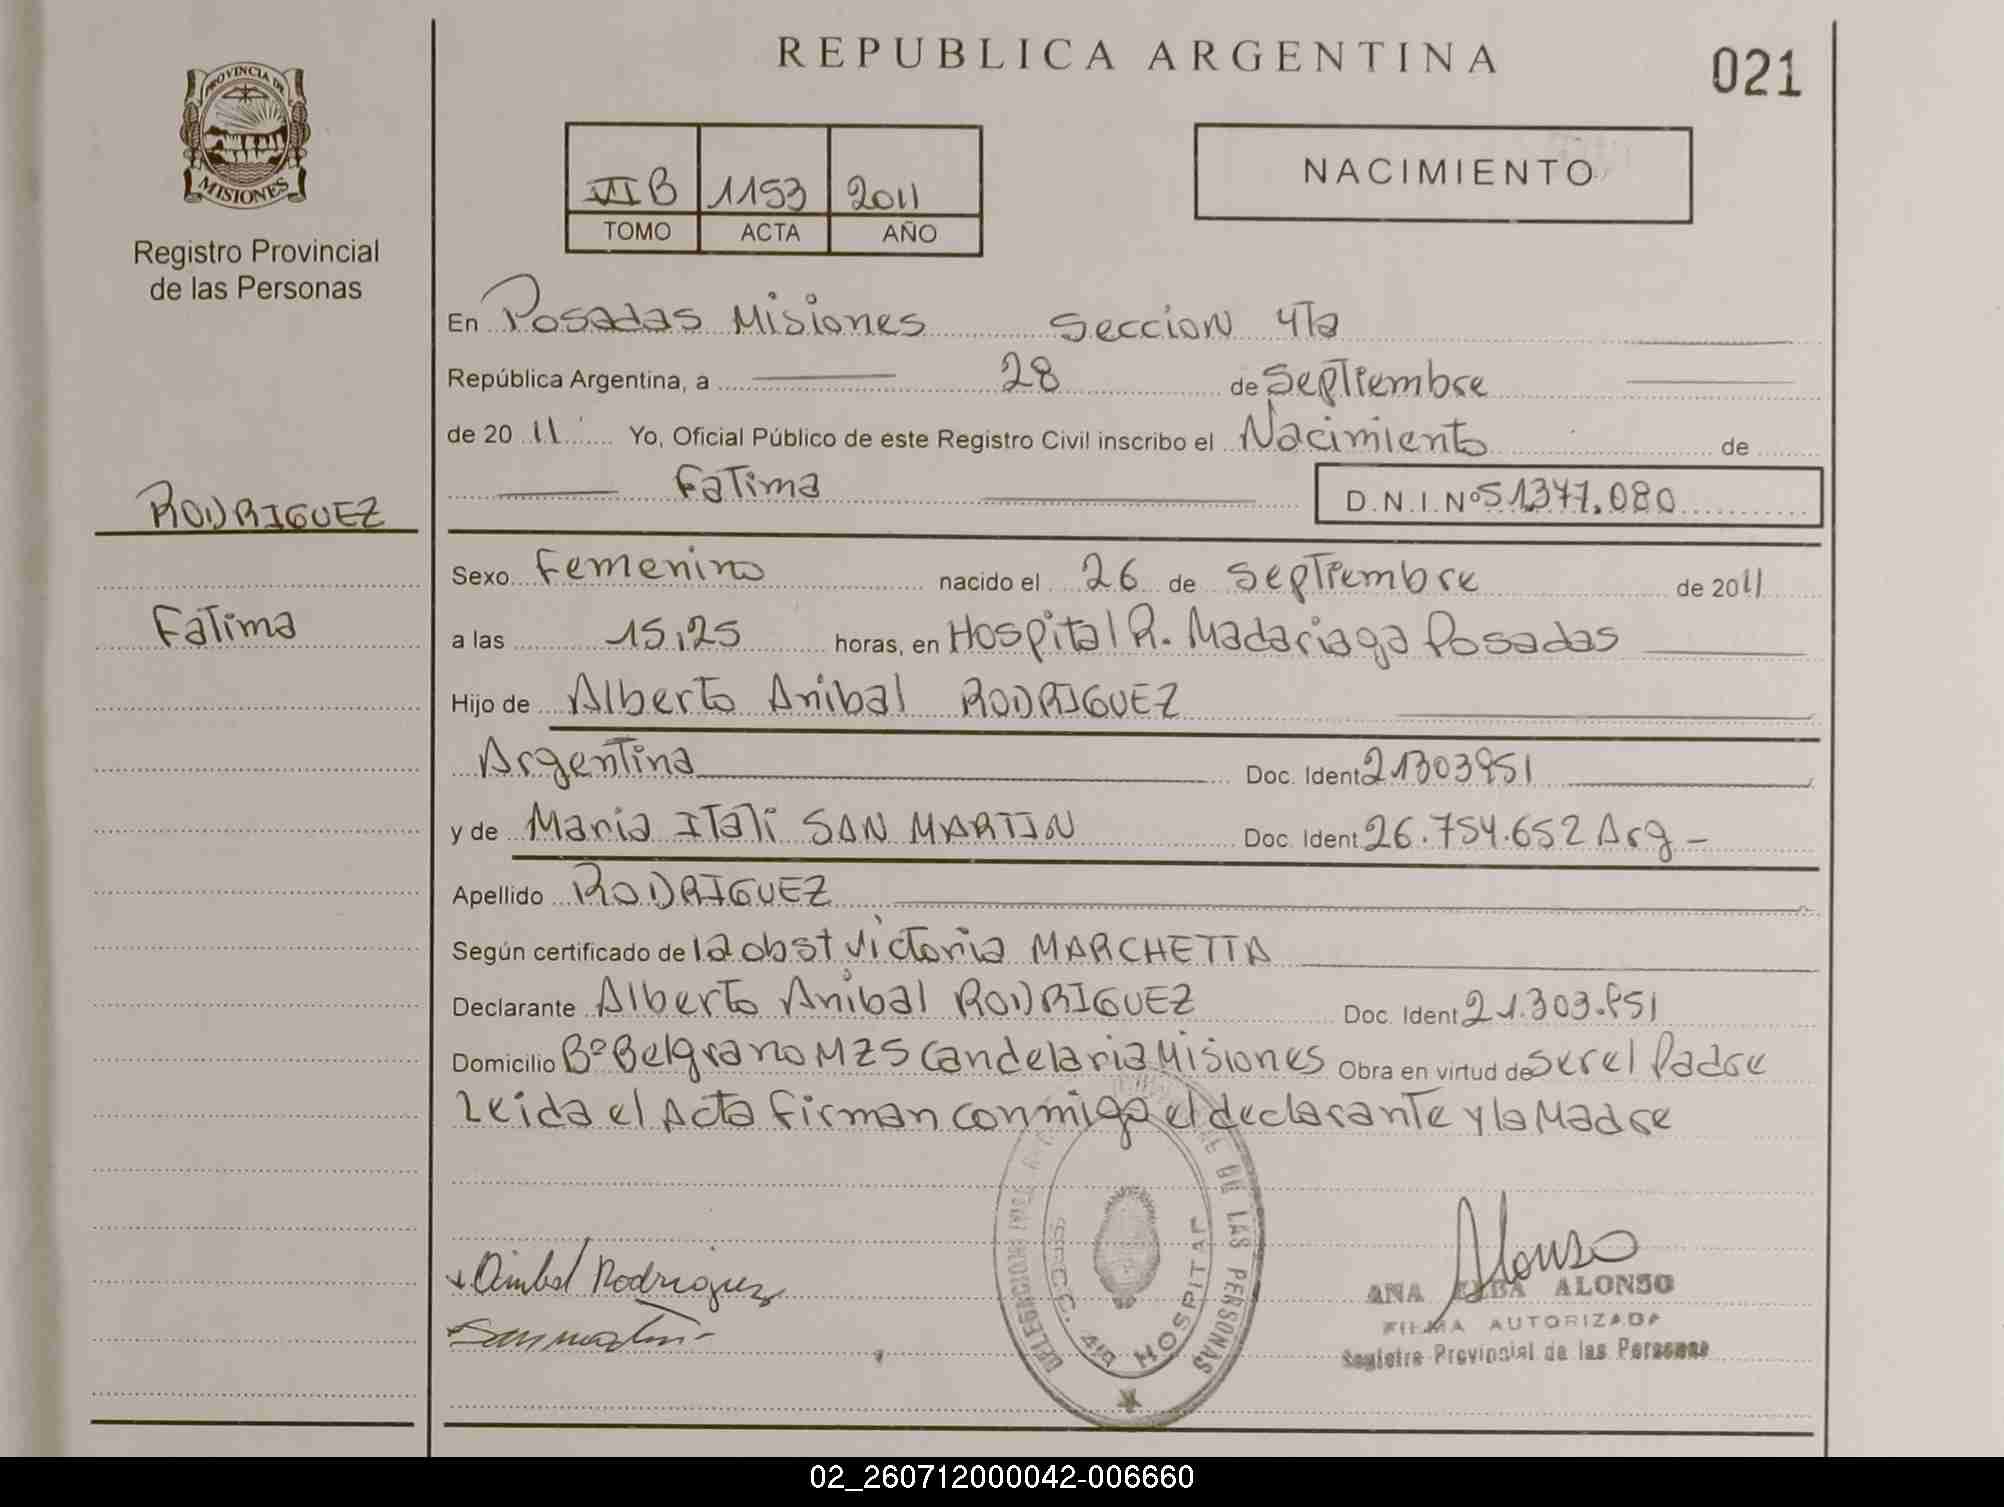 REPUBLICA ARGENTINA
021
PROVINCIA DE
MISIONES
Registro Provincial
de las Personas
VI B 1153 2011
TOMO ACTA AÑO
NACIMIENTO
En Posadas Misiones Seccion 4ta
República Argentina, a 28 de Septiembre
de 20 11 Yo, Oficial Público de este Registro Civil inscribo el Nacimiento de
Fatima D.N.I.Nº 51377.080
RODRIGUEZ
Fatima
Sexo Femenino nacido el 26 de Septiembre de 2011
a las 15,25 horas, en Hospital R. Madariaga Posadas
Hijo de Alberto Anibal RODRIGUEZ
Argentina Doc. Ident 21303951
y de Maria Itati SAN MARTIN Doc. Ident 26.754.652 Arg -
Apellido RODRIGUEZ
Según certificado de la obst Victoria MARCHETTA
Declarante Alberto Anibal RODRIGUEZ Doc. Ident 21.303.951
Domicilio Bº Belgrano MZ5 Candelaria Misiones Obra en virtud de ser el Padre
Leida el Acta firman conmigo el declarante y la Madre
Anibal Rodriguez
San martin
DE LAS PERSONAS
4ta HOSPITAL
Alonso
ANA ELBA ALONSO
FIRMA AUTORIZADA
Registro Provincial de las Personas
02_260712000042-006660